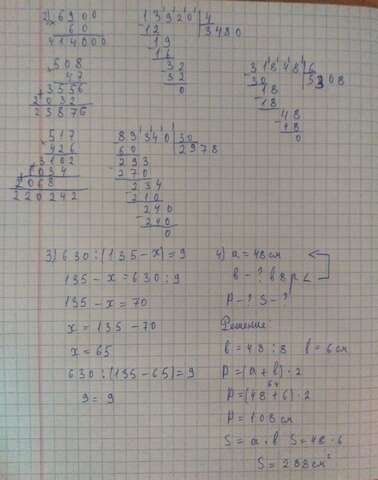 2) 6900
× 60
414000
× 508
47
+ 3556
2032
23876
× 517
426
+ 3102
1034
2068
220242
13920 | 4
- 12 | 3480
19
- 16
32
- 32
0
31848 | 6
- 30 | 5308
18
- 18
48
- 48
0
89340 | 30
- 60 | 2978
- 293
270
- 234
210
- 240
240
0
3) 630 : (135 - x) = 9
135 - x = 630 : 9
135 - x = 70
x = 135 - 70
x = 65
630 : (135 - 65) = 9
9 = 9
4) a = 48 см
b - ? в 8 р <
P - ? S - ?
Решение
b = 48 : 8 b = 6 см
P = (a + b) · 2
54
P = (48 + 6) · 2
P = 108 см
S = a · b S = 48 · 6
S = 288 см²